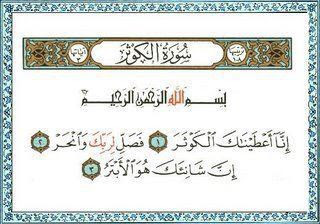 سُورَةُ الكَوْثَرِ
بِسْمِ اللَّهِ الرَّحْمَٰنِ الرَّحِيمِ
إِنَّا أَعْطَيْنَاكَ الْكَوْثَرَ ١ فَصَلِّ لِرَبِّكَ وَانْحَرْ ٢
إِنَّ شَانِئَكَ هُوَ الْأَبْتَرُ ٣